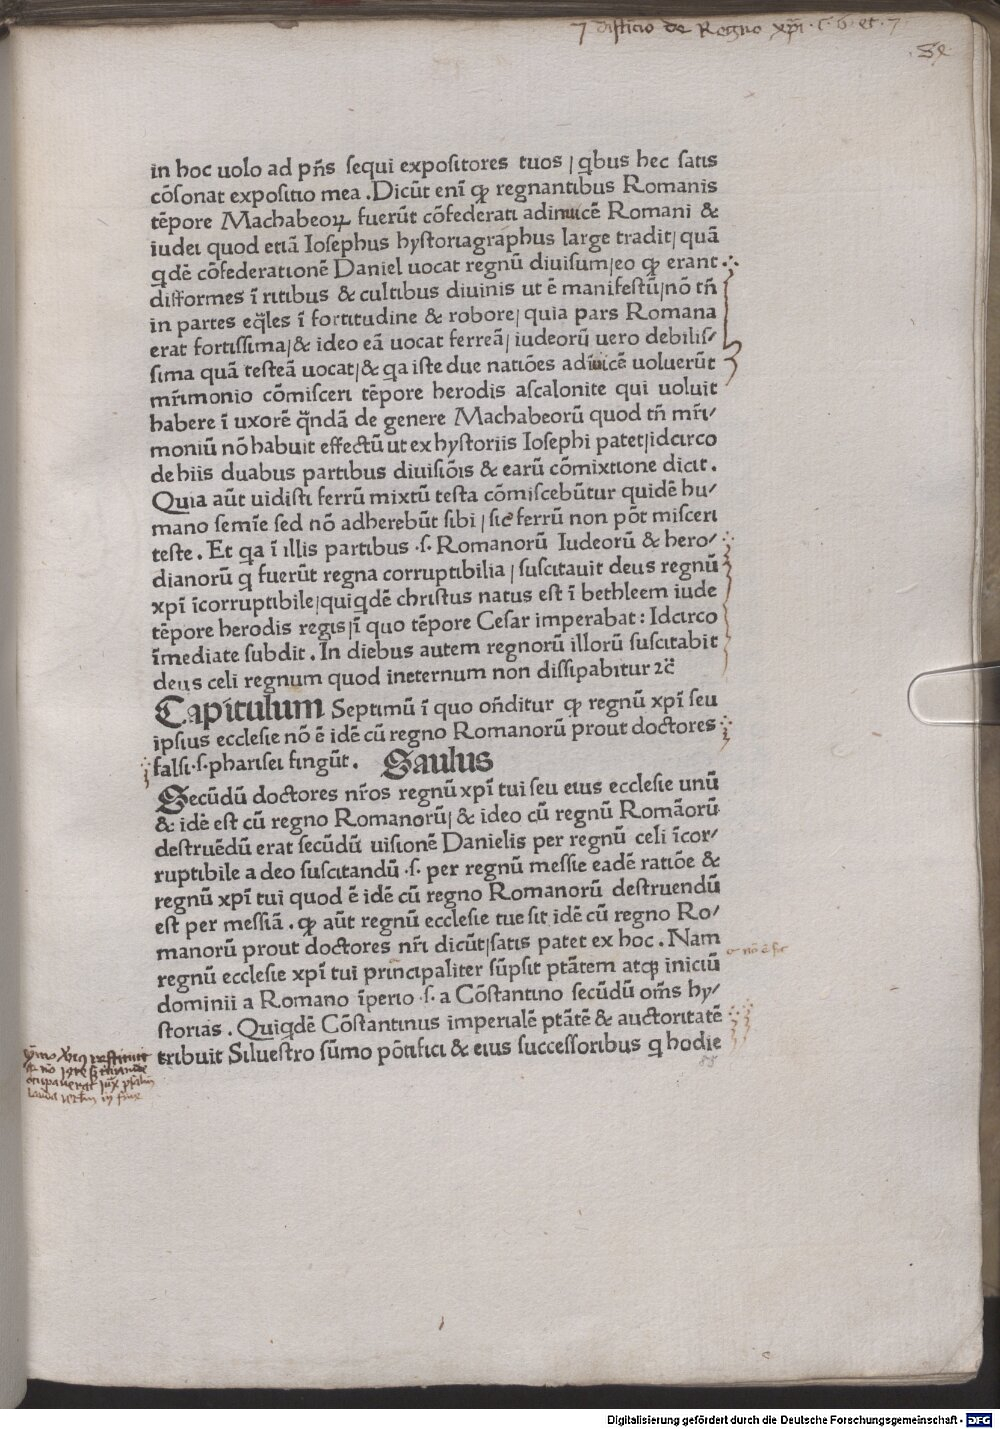 de Regno xp̄i
in hoc uolo ad pn̄s sequi expositores tuos / qbus hec satis
cōsonat expositio mea . Dicūt enī ꝙ regnantibus Romanis
tēpore Machabeoꝝ fuerūt cōfederati adinuicē Romani &
iudei quod etiā Iosephus hystoriagraphus large tradit/ quā
qdē cōfederationē Daniel uocat regnū diuisum/eo ꝙ erant
difformes ī ritibus & cultibus diuinis ut ē manifestū/nō tn̄
in partes eq̄les ī fortitudine & robore/ quia pars Romana
erat fortissima/& ideo eā uocat ferreā/ iudeorū uero debilis⸗
sima quā testeā uocat/& qa iste due natiōes adīuicē uoluerūt
mr̄imonio cōmisceri tēpore herodis ascalonite qui uoluit
habere ī uxorē q̄ndā de genere Machabeorū quod tn̄ mr̄i⸗
moniū nō habuit effectū ut ex hystoriis Iosephi patet/idcirco
de hiis duabus partibus diuisiōis & earū cōmixtione dicit .
Quia aūt uidisti ferrū mixtū testa cōmiscebūtur quidē hu⸗
mano semīe sed nō adherebūt sibi / sic ferrū non pōt misceri
teste . Et qa ī illis partibus ·s· Romanorū Iudeorū & hero⸗
dianorū q fuerūt regna corruptibilia / suscitauit deus regnū
xpī īcorruptibile/quiqdē christus natus est ī bethleem iude
tēpore herodis regis/ī quo tēpore Cesar imperabat : Idcirco
īmediate subdit . In diebus autem regnorū illorū suscitabit
deus celi regnum quod ineternum non dissipabitur ⁊c̄
Capitulum Septimū ī quo on̄ditur ꝙ regnū xpī seu
ipsius ecclesie nō ē idē cū regno Romanorū prout doctores
falsi ·s· pharisei fingūt . Saulus
Secūdū doctores nr̄os regnū xpī tui seu eius ecclesie unū
& idē est cū regno Romanorū/ & ideo cū regnū Romāorū
destruēdū erat secūdū uisionē Danielis per regnū celi īcor⸗
ruptibile a deo suscitandū ·s· per regnū messie eadē ratiōe &
regnū xpī tui quod ē idē cū regno Romanorū destruendū
est per messiā . ꝙ aūt regnū ecclesie tue sit idē cū regno Ro⸗
manorū prout doctores nr̄i dicūt/satis patet ex hoc . Nam
regnū ecclesie xpī tui principaliter sūpsit ptātem atqꝫ iniciū
dominii a Romano īperio ·s· a Cōstantino secūdū om̄s hy⸗
storias . Quiqdē Cōstantinus imperialē ptātē & auctoritatē
tribuit Siluestro sūmo pōtifici & eius successoribus q hodie
88
Digitalisierung gefördert durch die Deutsche Forschungsgemeinschaft - DFG